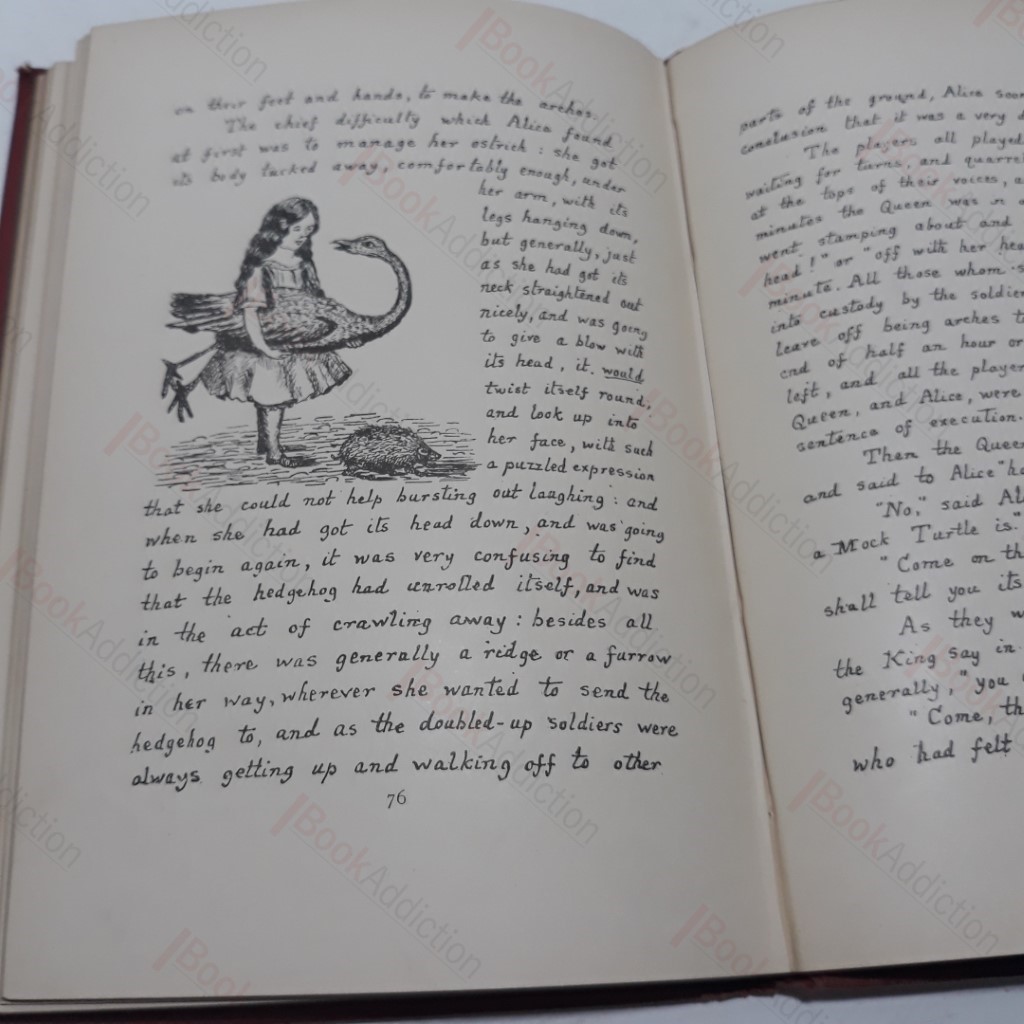 on their feet and hands, to make the arches.
The chief difficulty which Alice found
at first was to manage her ostrich: she got
its body tucked away, comfortably enough, under
her arm, with its
legs hanging down,
but generally, just
as she had got its
neck straightened out
nicely, and was going
to give a blow with
its head, it would
twist itself round,
and look up into
her face, with such
a puzzled expression
that she could not help bursting out laughing: and
when she had got its head down, and was going
to begin again, it was very confusing to find
that the hedgehog had unrolled itself, and was
in the act of crawling away: besides all
this, there was generally a ridge or a furrow
in her way, wherever she wanted to send the
hedgehog to, and as the doubled-up soldiers were
always getting up and walking off to other
76
parts of the ground, Alice soon
conclusion that it was a very d
The players all played
waiting for turns, and quarrel
at the tops of their voices, a
minutes the Queen was in a
went stamping about and
head!" or "off with her hea
minute. All those whom s
into custody by the soldier
leave off being arches t
end of half an hour or
left, and all the player
Queen, and Alice, were
sentence of execution.
Then the Queen
and said to Alice "ha
"No," said Al
a Mock Turtle is."
"Come on th
shall tell you its
As they w
the King say in
generally, "you
"Come, th
who had felt
BookAddiction